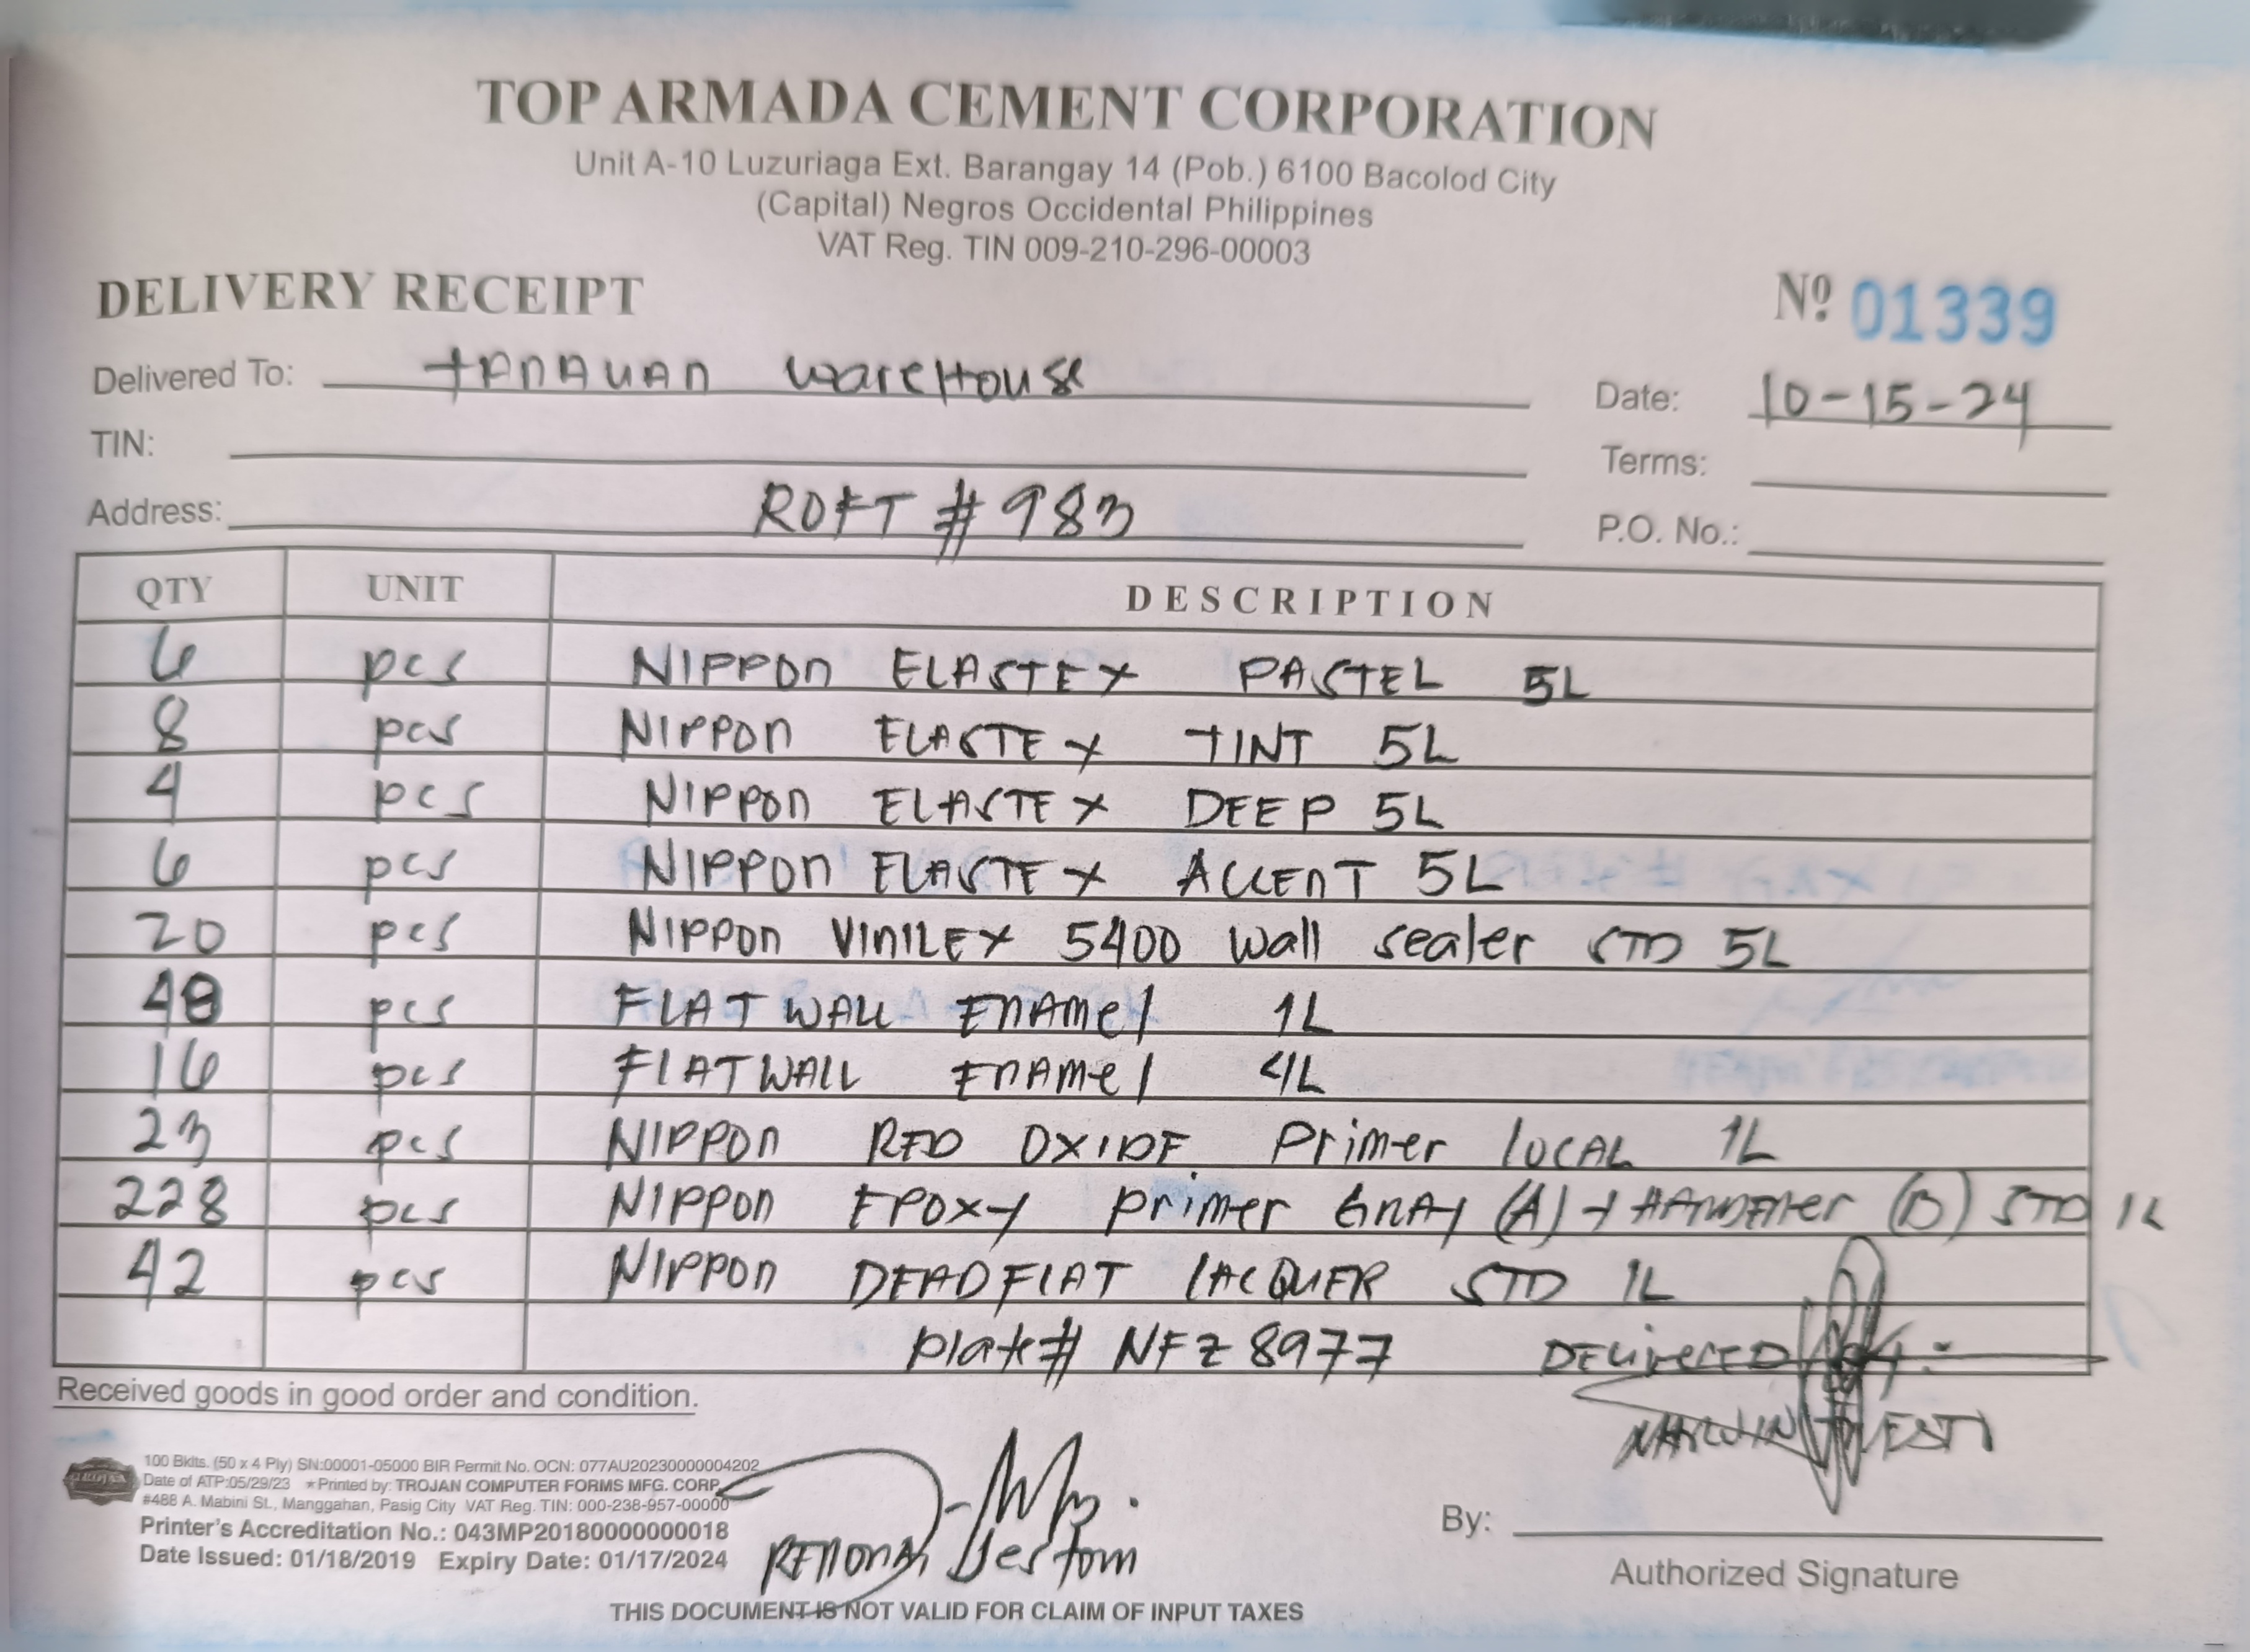 TOP ARMADA CEMENT CORPORATION
Unit A-10 Luzuriaga Ext. Barangay 14 (Pob.) 6100 Bacolod City
(Capital) Negros Occidental Philippines
VAT Reg. TIN 009-210-296-00003
DELIVERY RECEIPT Nº 01339
Delivered To: TANAUAN WAREHOUSE Date: 10-15-24
TIN: Terms:
Address: ROFT #983 P.O. No.:
QTY UNIT DESCRIPTION
6 pcs NIPPON ELASTEX PASTEL 5L
8 pcs NIPPON ELASTEX TINT 5L
4 pcs NIPPON ELASTEX DEEP 5L
6 pcs NIPPON ELASTEX ACCENT 5L
20 pcs NIPPON VINILEX 5400 wall sealer STD 5L
48 pcs FLAT WALL ENAMEl 1L
16 pcs FLATWALL ENAMEl 4L
23 pcs NIPPON RED OXIDE Primer LOCAL 1L
228 pcs NIPPON EPOXY primer GRAY (A) + (B) STD 1L
42 pcs NIPPON DEADFLAT LACQUER STD 1L
plate# NFZ 8977 DELIVERED
Received goods in good order and condition.
100 Bklts. (50 x 4 Ply) SN:00001-05000 BIR Permit No. OCN: 077AU20230000004202
Date of ATP:05/29/23 *Printed by: TROJAN COMPUTER FORMS MFG. CORP.
#488 A. Mabini St., Manggahan, Pasig City VAT Reg. TIN: 000-238-957-00000
Printer's Accreditation No.: 043MP20180000000018
Date Issued: 01/18/2019 Expiry Date: 01/17/2024
By:
Authorized Signature
THIS DOCUMENT IS NOT VALID FOR CLAIM OF INPUT TAXES